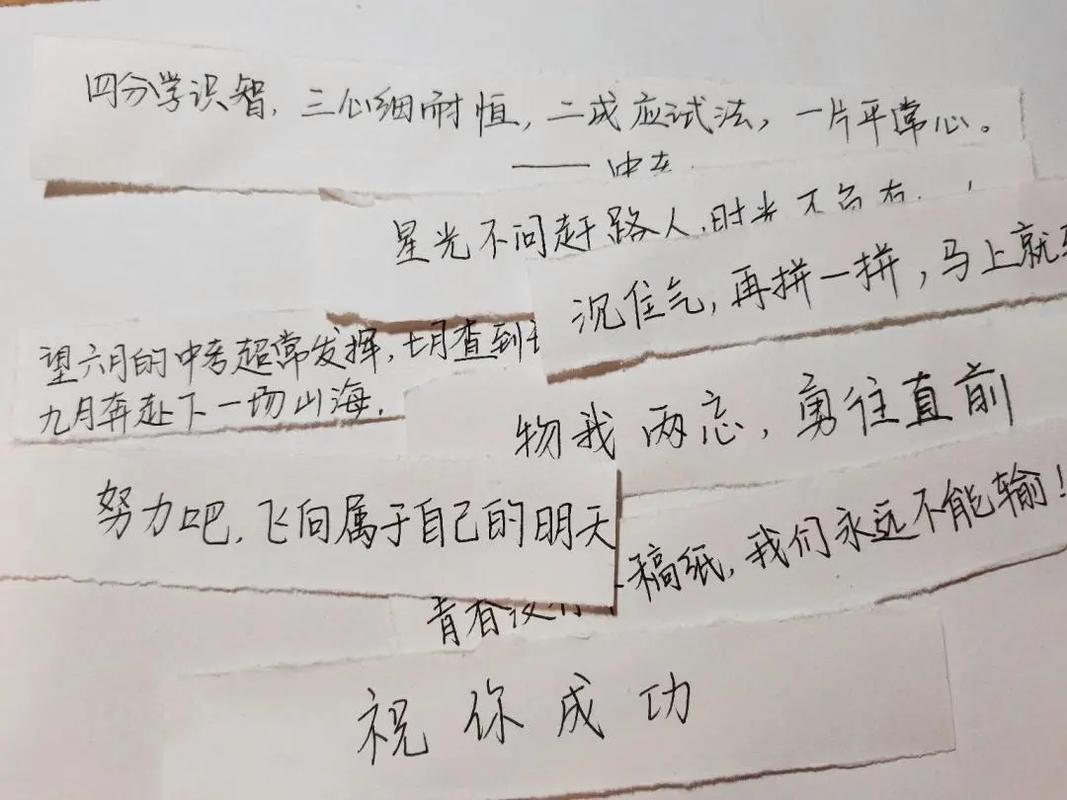 四分学识智，三心细耐恒，二成应试法，一片平常心。
——中
星光不问赶路人，时光不负有
沉住气，再拼一拼，马上就
望六月的中考超常发挥，七月查到
九月奔赴下一场山海。
物我两忘，勇往直前
努力吧，飞向属于自己的明天
青春没有 稿纸，我们永远不能输！
祝你成功